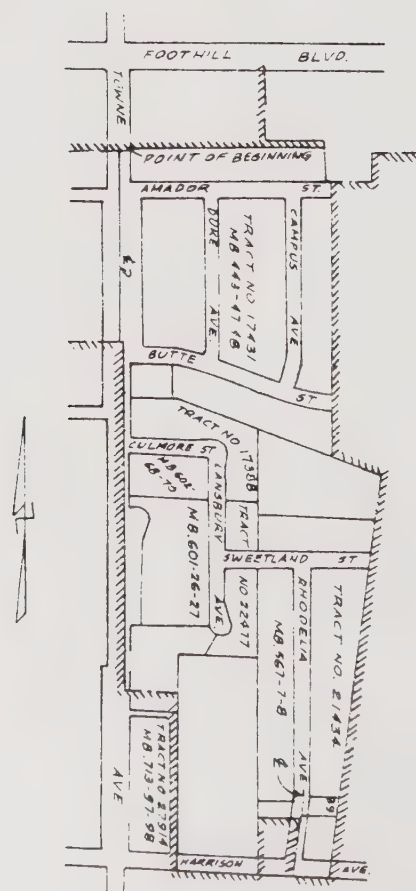 FOOTHILL BLVD.
TOWNE
POINT OF BEGINNING
AMADOR ST.
DUKE AVE.
TRACT NO. 17431
M B 443-47-48
CAMPUS AVE
BUTTE ST
TRACT NO 17388
CULMORE ST
M B 602-
68-70
LANSBURY AVE
M B. 601-26-27
TRACT NO 22477
SWEETLAND ST
RHODELIA AVE
M B. 567-7-8
TRACT NO. 21434
39
TRACT NO 27914
M B. 713-97-98
AVE
HARRISON AVE.